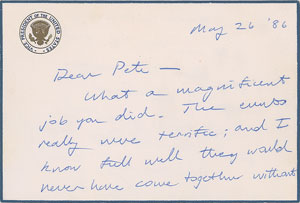 VICE PRESIDENT OF THE UNITED STATES
May 26 '86
Dear Pete —
What a magnificent
job you did. The events
really were terrific; and I
know full well they would
never have come together without